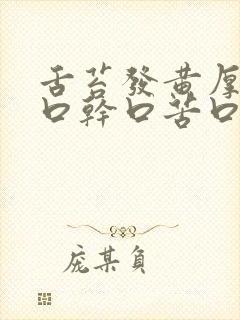 舌苔發黃厚
口幹口苦口
庞某負